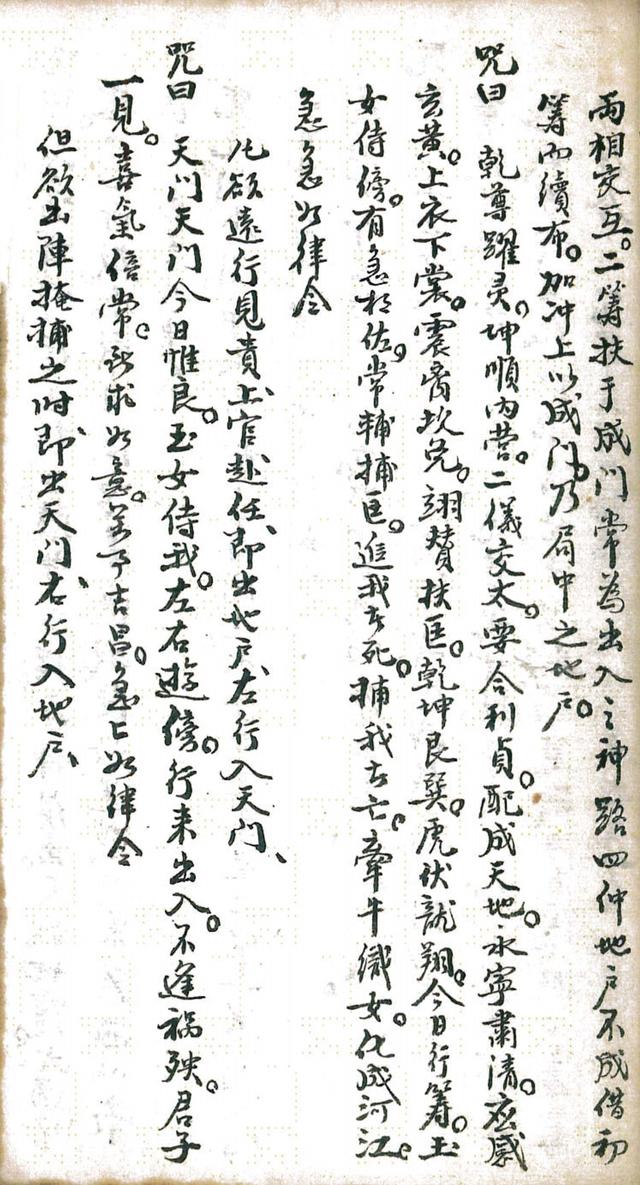 兩相交互。二筭扶于成门常為出入之神路四仲地户不成借初
筭而續布。加冲上以成门。乃局中之地户。
咒曰 乾尊躍灵。坤順内营。二儀交太。要合利貞。配成天地。永寧肅清。应感
玄黄。上衣下裳。震离坎兑。翊賛扶匡。乾坤艮巽。虎伏龍翔。今日行筭。玉
女侍傍。有急相佐。常輔捕匡。追我者死。捕我者亡。牽牛織女。化成河江。
急急如律令
凡欲遠行見貴、上官赴任、即出地户左行入天门、
咒曰 天门天门今日惟良。玉女侍我。左右遊傍。行来出入。不逢禍殃。君子
一見。喜氣倍常。所求如意。萬事吉昌。急匕如律令
但欲出陣掩捕之时、即出天门右行入地户、